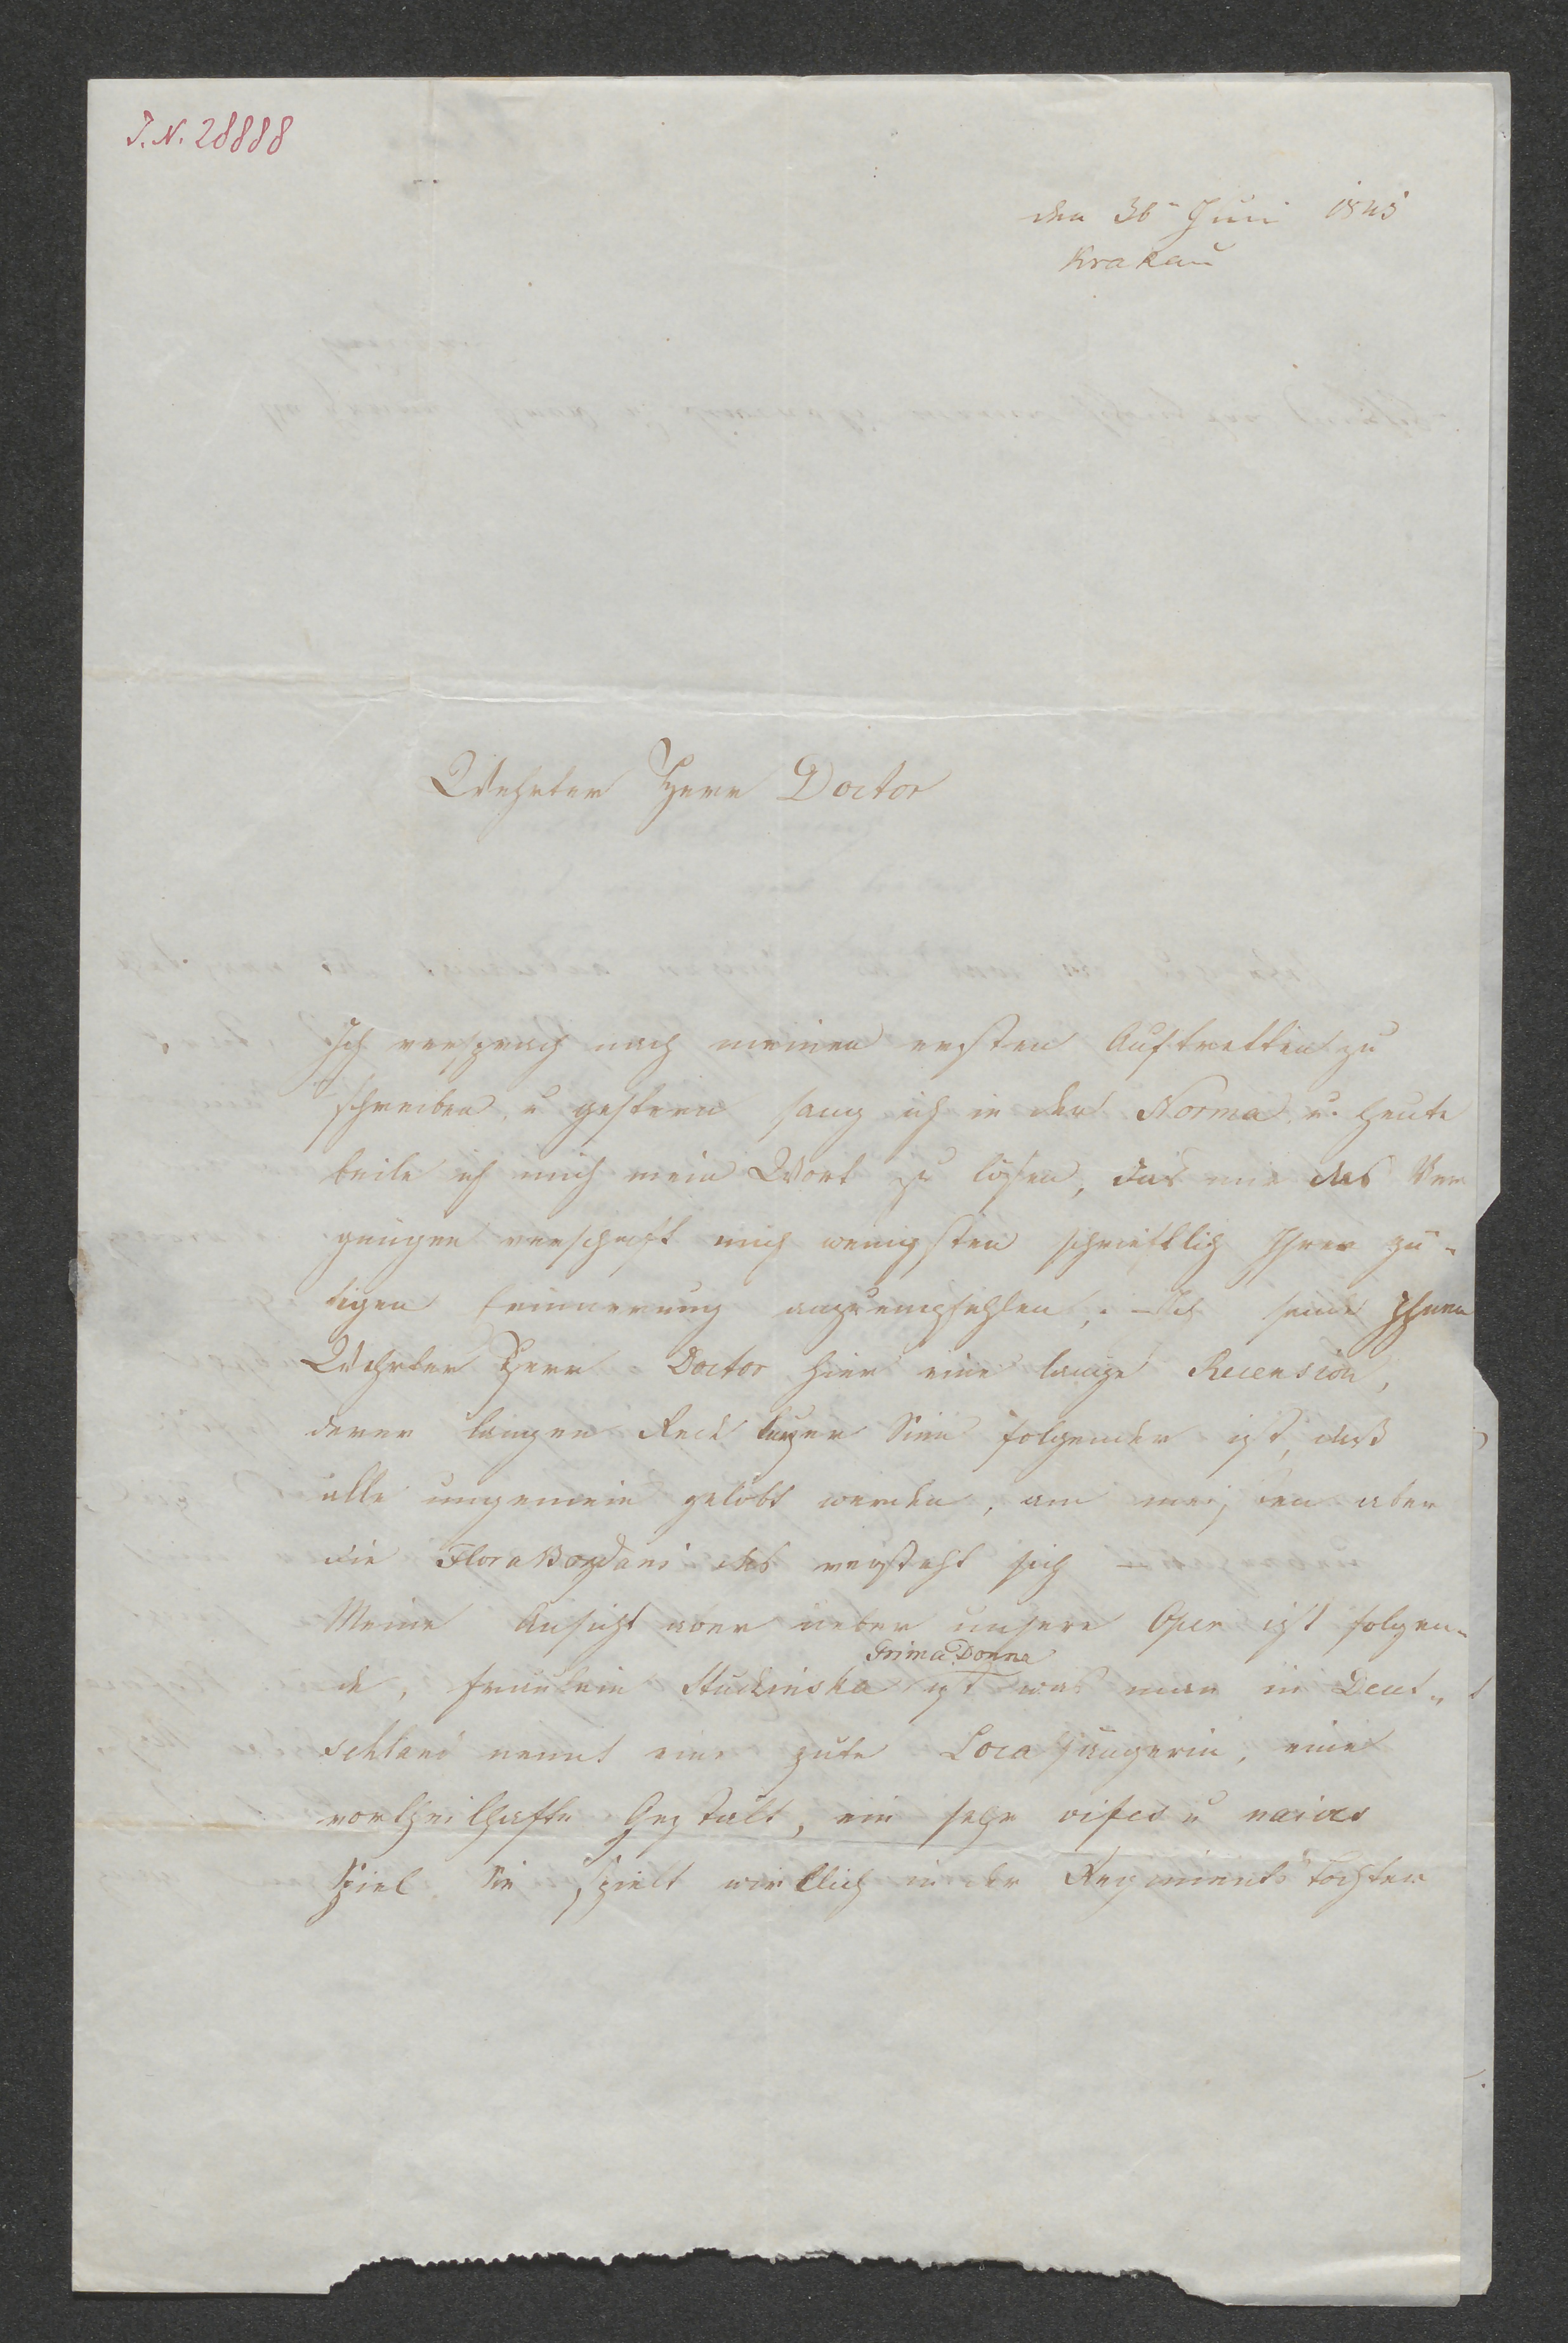 J. N. 28888
den 30 Juni 1845
Krakau
Wehrter Herr Doctor
Ich versprach nach meinen ersten Auftretten zu
schreiben u gestern sang ich in der Norma u. heute
beile ich mich mein Wort zu lösen, das mir das Ver
gnügen verschaft mich wenigsten schrieftlich Ihrer gü-
tigen Erinnerung anzuempfehlen. – Ich sende Ihnen
Wehrter Herr Doctor hier eine lange Recension,
derer langen Rede kurzer Sinn folgender ist, daß
alle ungemein gelobt werden, am meisten aber
die Flora Bogdani das versteht sich –
Meine Ansicht aber ueber unsere Oper ist folgen-
de, Fräulein Studzinska Prima Donna ist was man in Deut-
schland nennt eine gute Localsängerin, eine
vortheilhafte Gestalt, ein sehr vifes u naives
Spiel Sie spielt wirklich in der Regiments Tochter